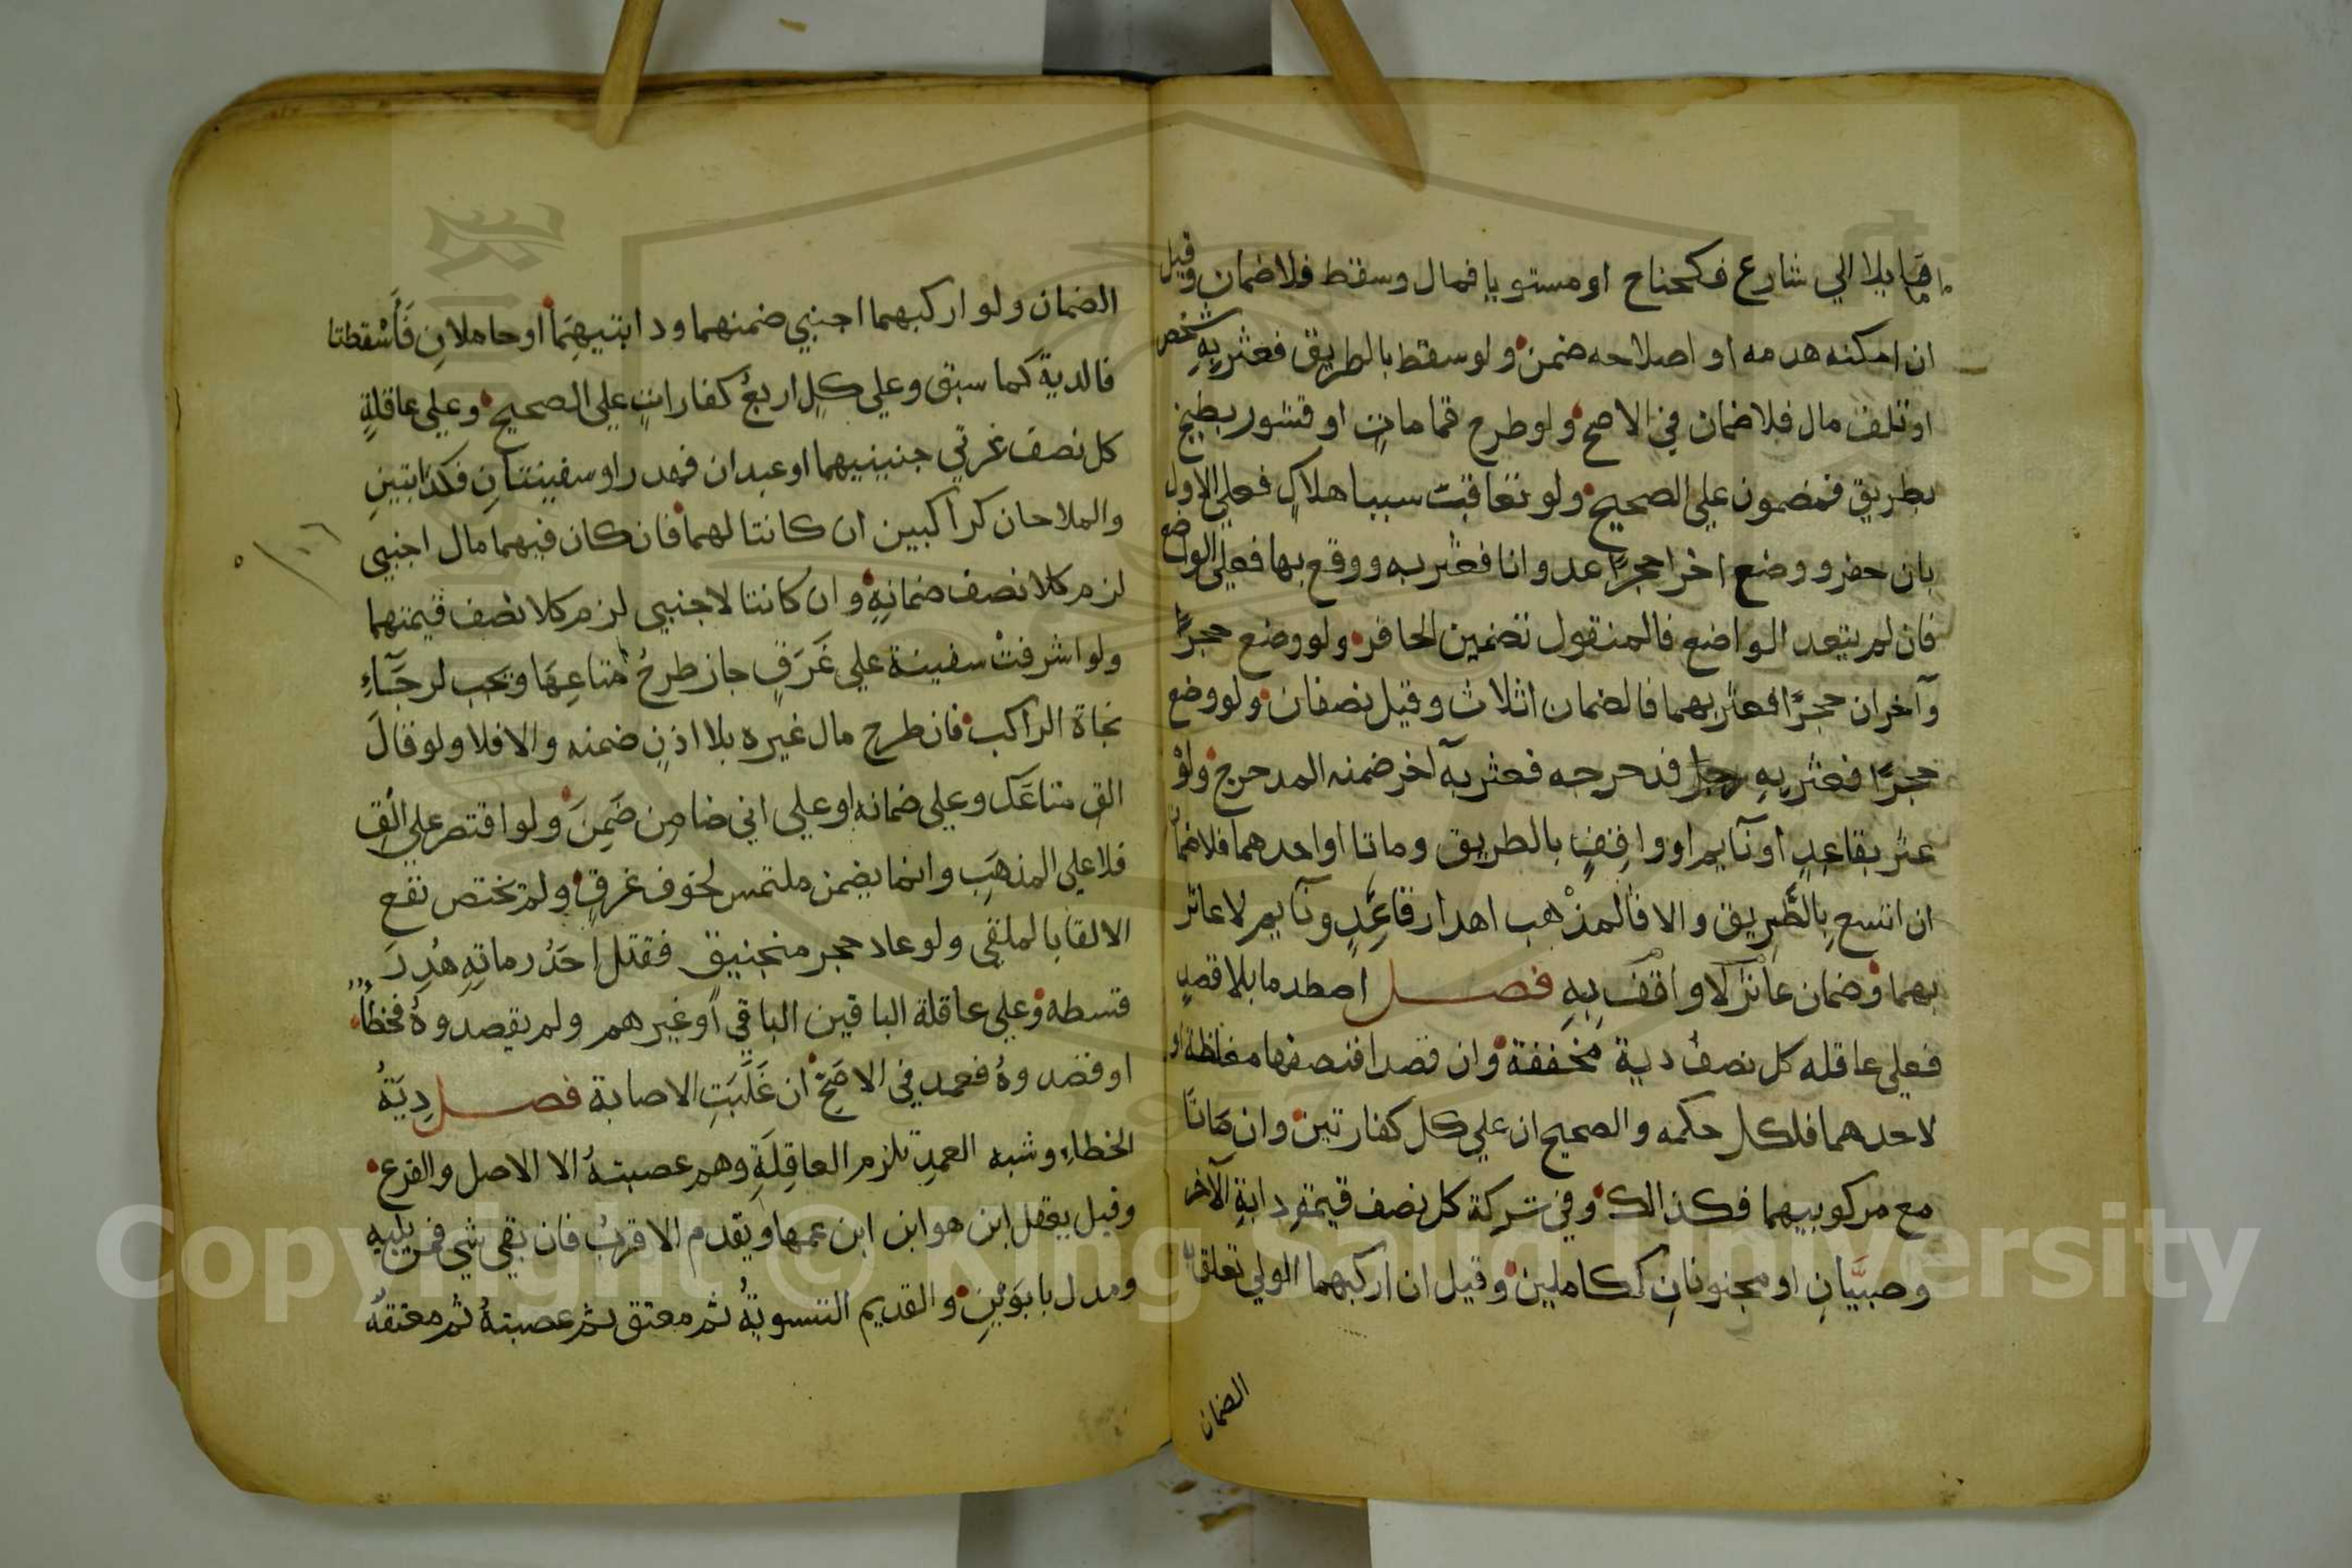 مايلا الي شارع فكجناح او مستويا فمال وسقط فلا ضمان وقيل
ان امكنه هدمه او اصلاحه ضمن ولو سقط بالطريق فعثر بِهِ شخص
او تلف مال فلا ضمان في الاصح ولو طرح قماماتٍ او قشور بطيخ
بطريق فمضمون علي الصحيح ولو تعاقبت سببا هلاكٍ فعلي الاول
بان حفر ووضع اخر حجرًا عدوانا فعثر به ووقع بها فعلي الواضع
فان لم يتعد الواضع فالمنقول تضمين الحافر ولو وضع حجرًا
وآخران حجرًا فعثر بهما فالضمان اثلاث وقيل نصفان ولو وضع
حجرًا فعثر بِهِ رجل فدحرجه فعثر بهِ آخر ضمنه المدحرج ولَوْ
عثر بقاعِدٍ او نآيم او واقِفٍ بالطريق وماتا او احدهما فلا ضمان
ان اتسع بِالطَّرِيق والا فالمذْهب اهدار قاعِدٍ ونآيم لا عاثر
بهما وضمان عاثرٍ لا واقف بِهِ فصل اصطدما بلا قصدٍ
فعلي عاقله كل نصفُ دية مخففة وان قصدا فنصفها مغلظة او
لاحدهما فلكل حكمه والصحيح ان علي كل كفارتين وان مَاتَا
مع مركوبيهما فكذالك وفي تركة كل نصف قيمةِ دابةِ الآخر
وصبيَّانِ او مجنونانِ ككاملين وقيل ان اركبهما الولي تعلق به
الضمان
الضمان ولو اركبهما اجنبي ضمنهما ودابتيهِمَا او حاملانِ فَأَسْقطتا
فالدية كما سبق وعلي كلٍ اربعُ كفاراتٍ علي الصحيح وعلي عاقلةِ
كل نصف غرتي جنينيهما او عبدان فهدر او سفينتانِ فكدابتينِ
والملاحان كراكبين ان كانتا لهما فان كان فيهما مال اجنبي
لزم كلا نصف ضمانِهِ وان كانتا لاجنبي لزم كلا نصف قيمتهما
ولو اشرفتْ سفينة علي غَرَقٍ جاز طرحُ مَتاعِهَا ويجب لرجَآءِ
نجاة الراكب فان طرح مال غيره بلا اذنٍ ضمنه والا فلا ولو قالَ
القِ متاعَك وعلي ضمانه او علي اني ضامِن ضَمِنَ ولو اقتصر علي الْقِ
فلا علي المذهَبِ وانما يضمن ملتمس لخوف غرقٍ ولم يختص نفع
الالقا بالملقي ولو عاد حجر منجنيق فقتل احَدُ رماتِهِ هُدِرَ
قسطه وعلي عاقلة الباقين الباقي او غيرهم ولم يقصدوهُ فخطأ
او قصدوهُ فعمد في الاصَحِّ ان غَلَبَتِ الاصابة فصل دِيَةُ
الخطاءِ وشبه العمدِ تلزم العاقِلَةِ وهم عصبتهُ الا الاصل والفرع
وقيل يعقل ابن هو ابن ابن عمها ويقدم الاقربُ فان بقي شي فمن يليه
ومدل بابوَيْنِ والقديم التسويةُ ثم معتق ثم عصبتهُ ثم معتقهُ
Copyright © King Saud University